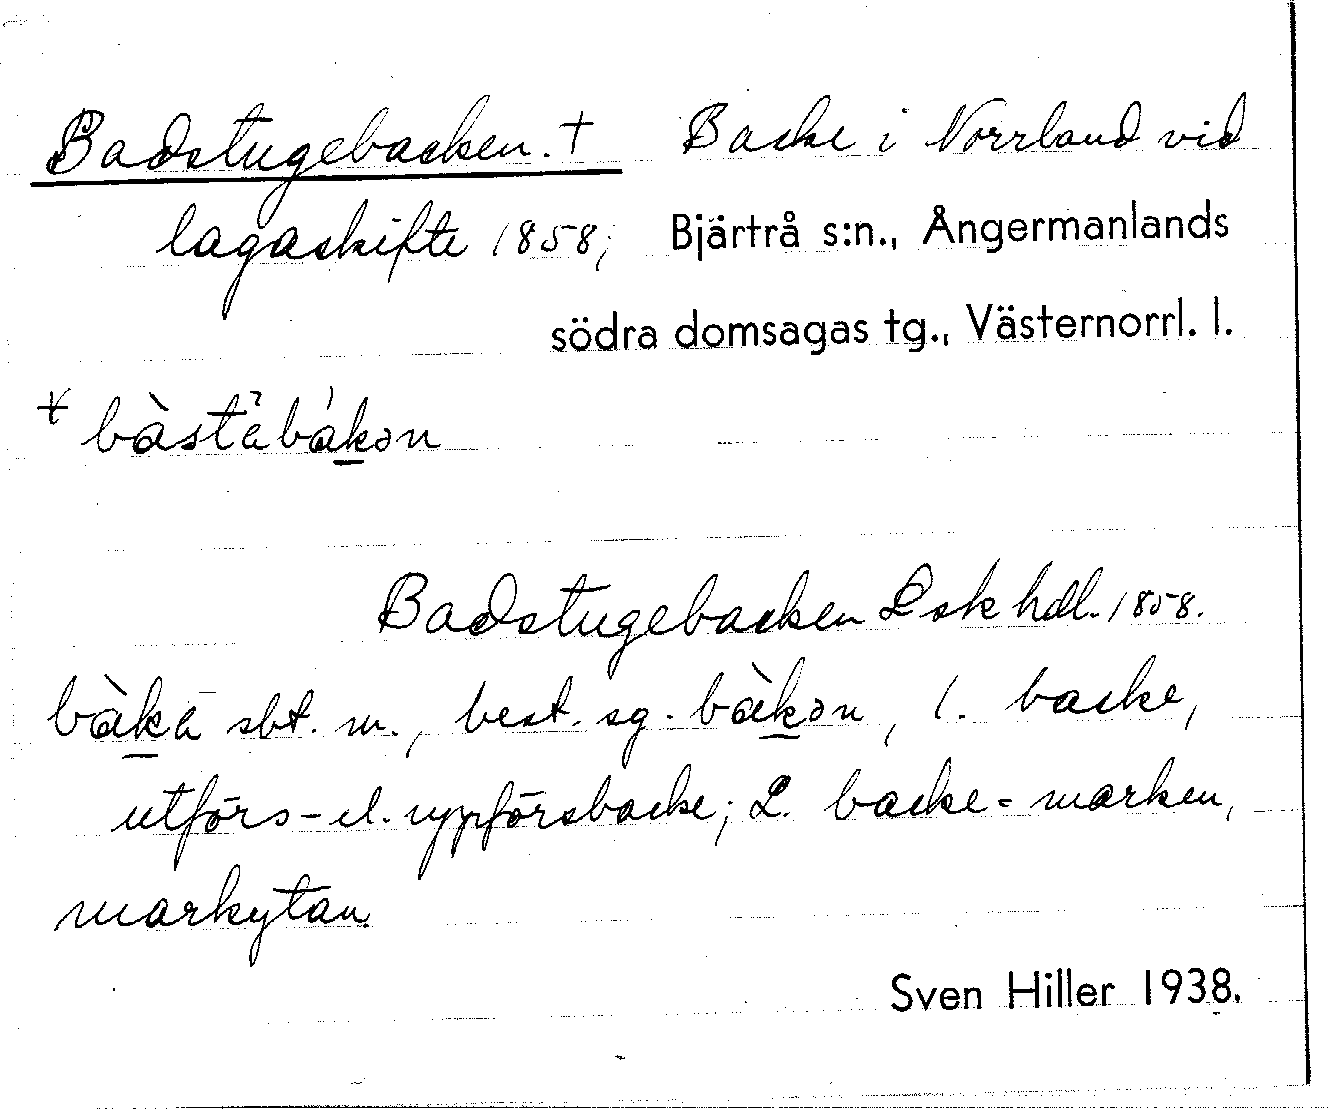 Badstugebacken. † Backe i Norrland vid
lagaskifte 1858; Bjärtrå s:n., Ångermanlands
södra domsagas tg., Västernorrl. l.
+ bàstäbákən
Badstugebacken Lskhdl. 1858.
bàkä sbt. m., best. sg. bàkən, 1. backe,
utförs- el. uppförsbacke; 2. backe = marken,
markytan.
Sven Hiller 1938.